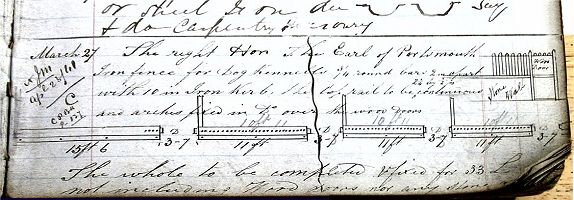 or Steel Iron do Say
& do Carpentry
March 27 The right Hon The Earl of Portsmouth
Iron fence for Dog kennells 3/4 round bars 2 in apart
with 10 in Iron kirb. The top rail to be continuous
and arches fixed in Do over the wood doors
Stone Wall
Door
10ft 11 10ft 11 10ft
D D D
3-7 3-7 3-7
15ft 6 11ft 11ft 11ft
The whole to be completed & fixed for 33 L
not including Wood doors nor any Stone